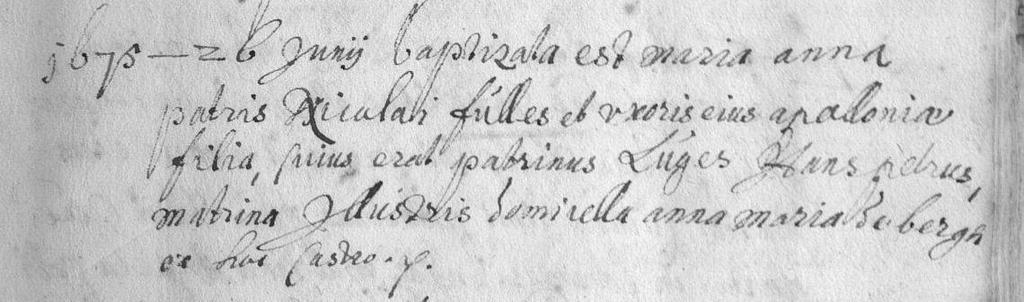 1675 – 26 Junij baptizata est maria anna
patris Nicolai fülles et uxoris eius apalloniæ
filia, cuius erat patrinus Lüges Hans petrus,
matrina Jllustris domicella anna maria de bergh
ex hoc Castro. p.